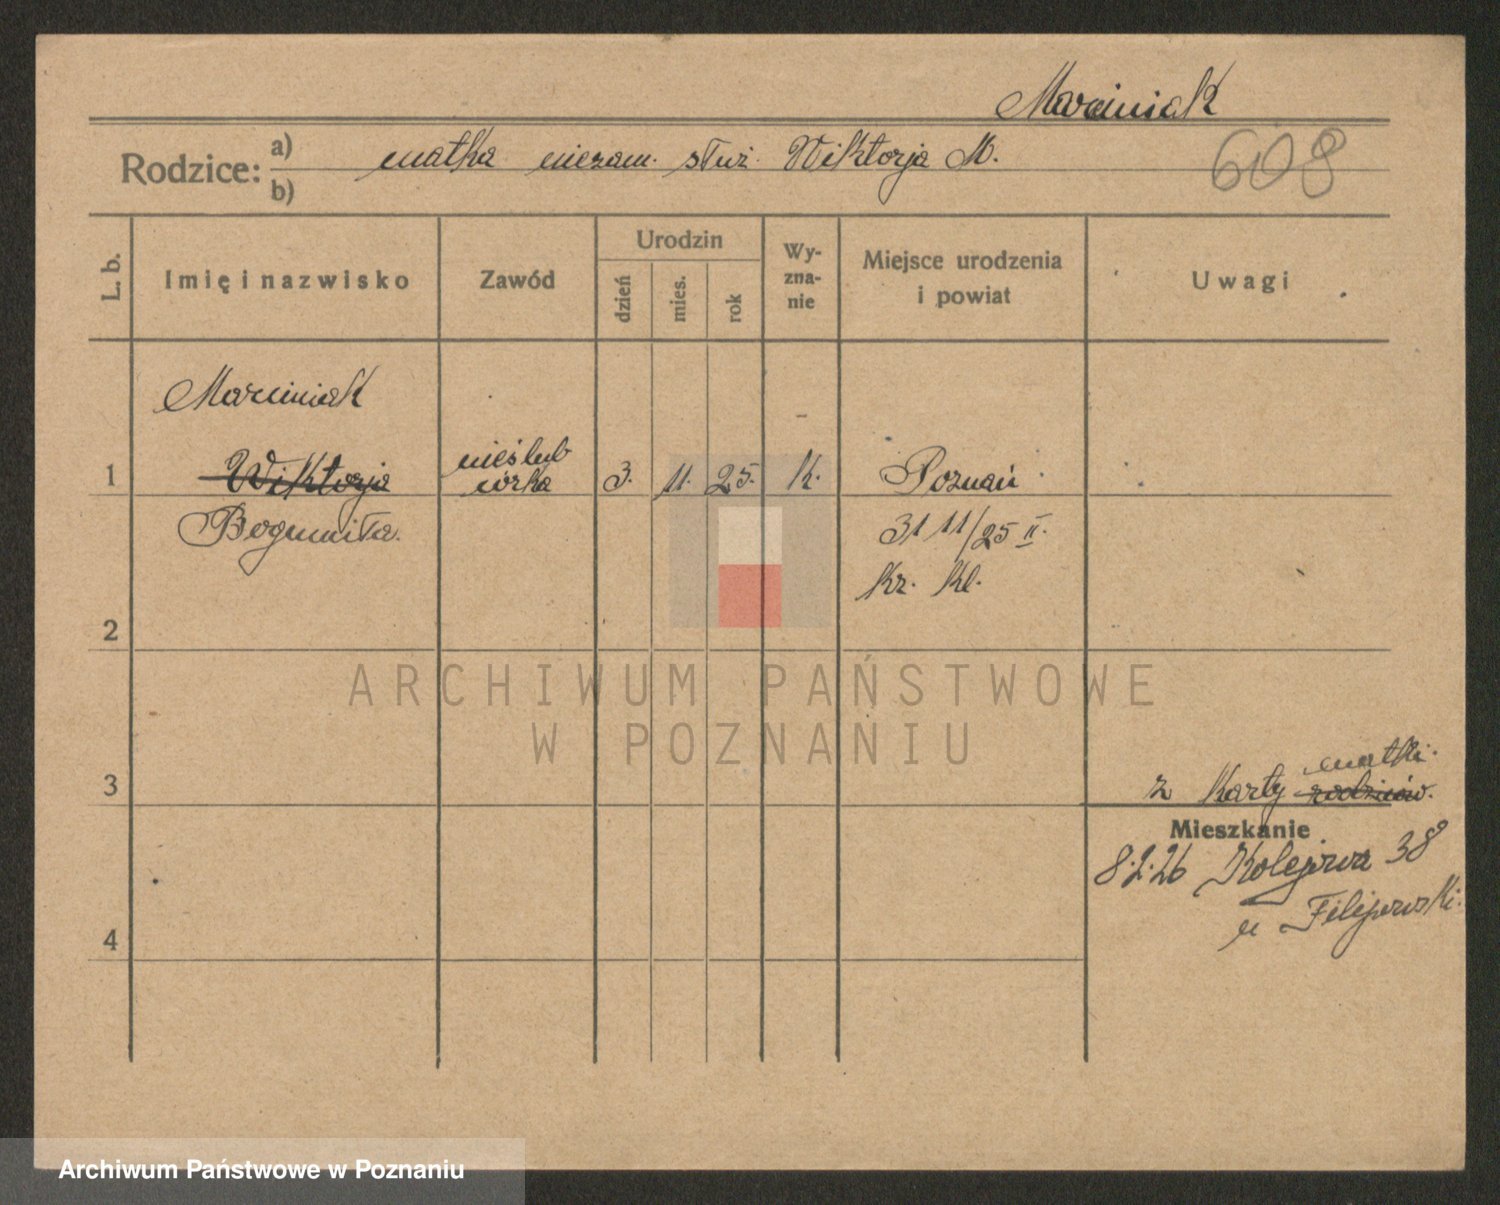 Marciniak
Rodzice: a) matka niezam. służ. Wiktorja M. 608
b)
L. b. Imię i nazwisko Zawód Urodzin dzień mies. rok Wy-zna-nie Miejsce urodzenia i powiat Uwagi
Marciniak
1 Wiktorja nieślub córka 3. 11. 25. K. Poznań
Bogumiła. 31 11/25 II.
kr. kl.
2
ARCHIWUM PAŃSTWOWE
W POZNANIU
matki.
3 z karty rodziców.
Mieszkanie
8.2.26 Kolejowa 38
u Filipowski.
4
Archiwum Państwowe w Poznaniu